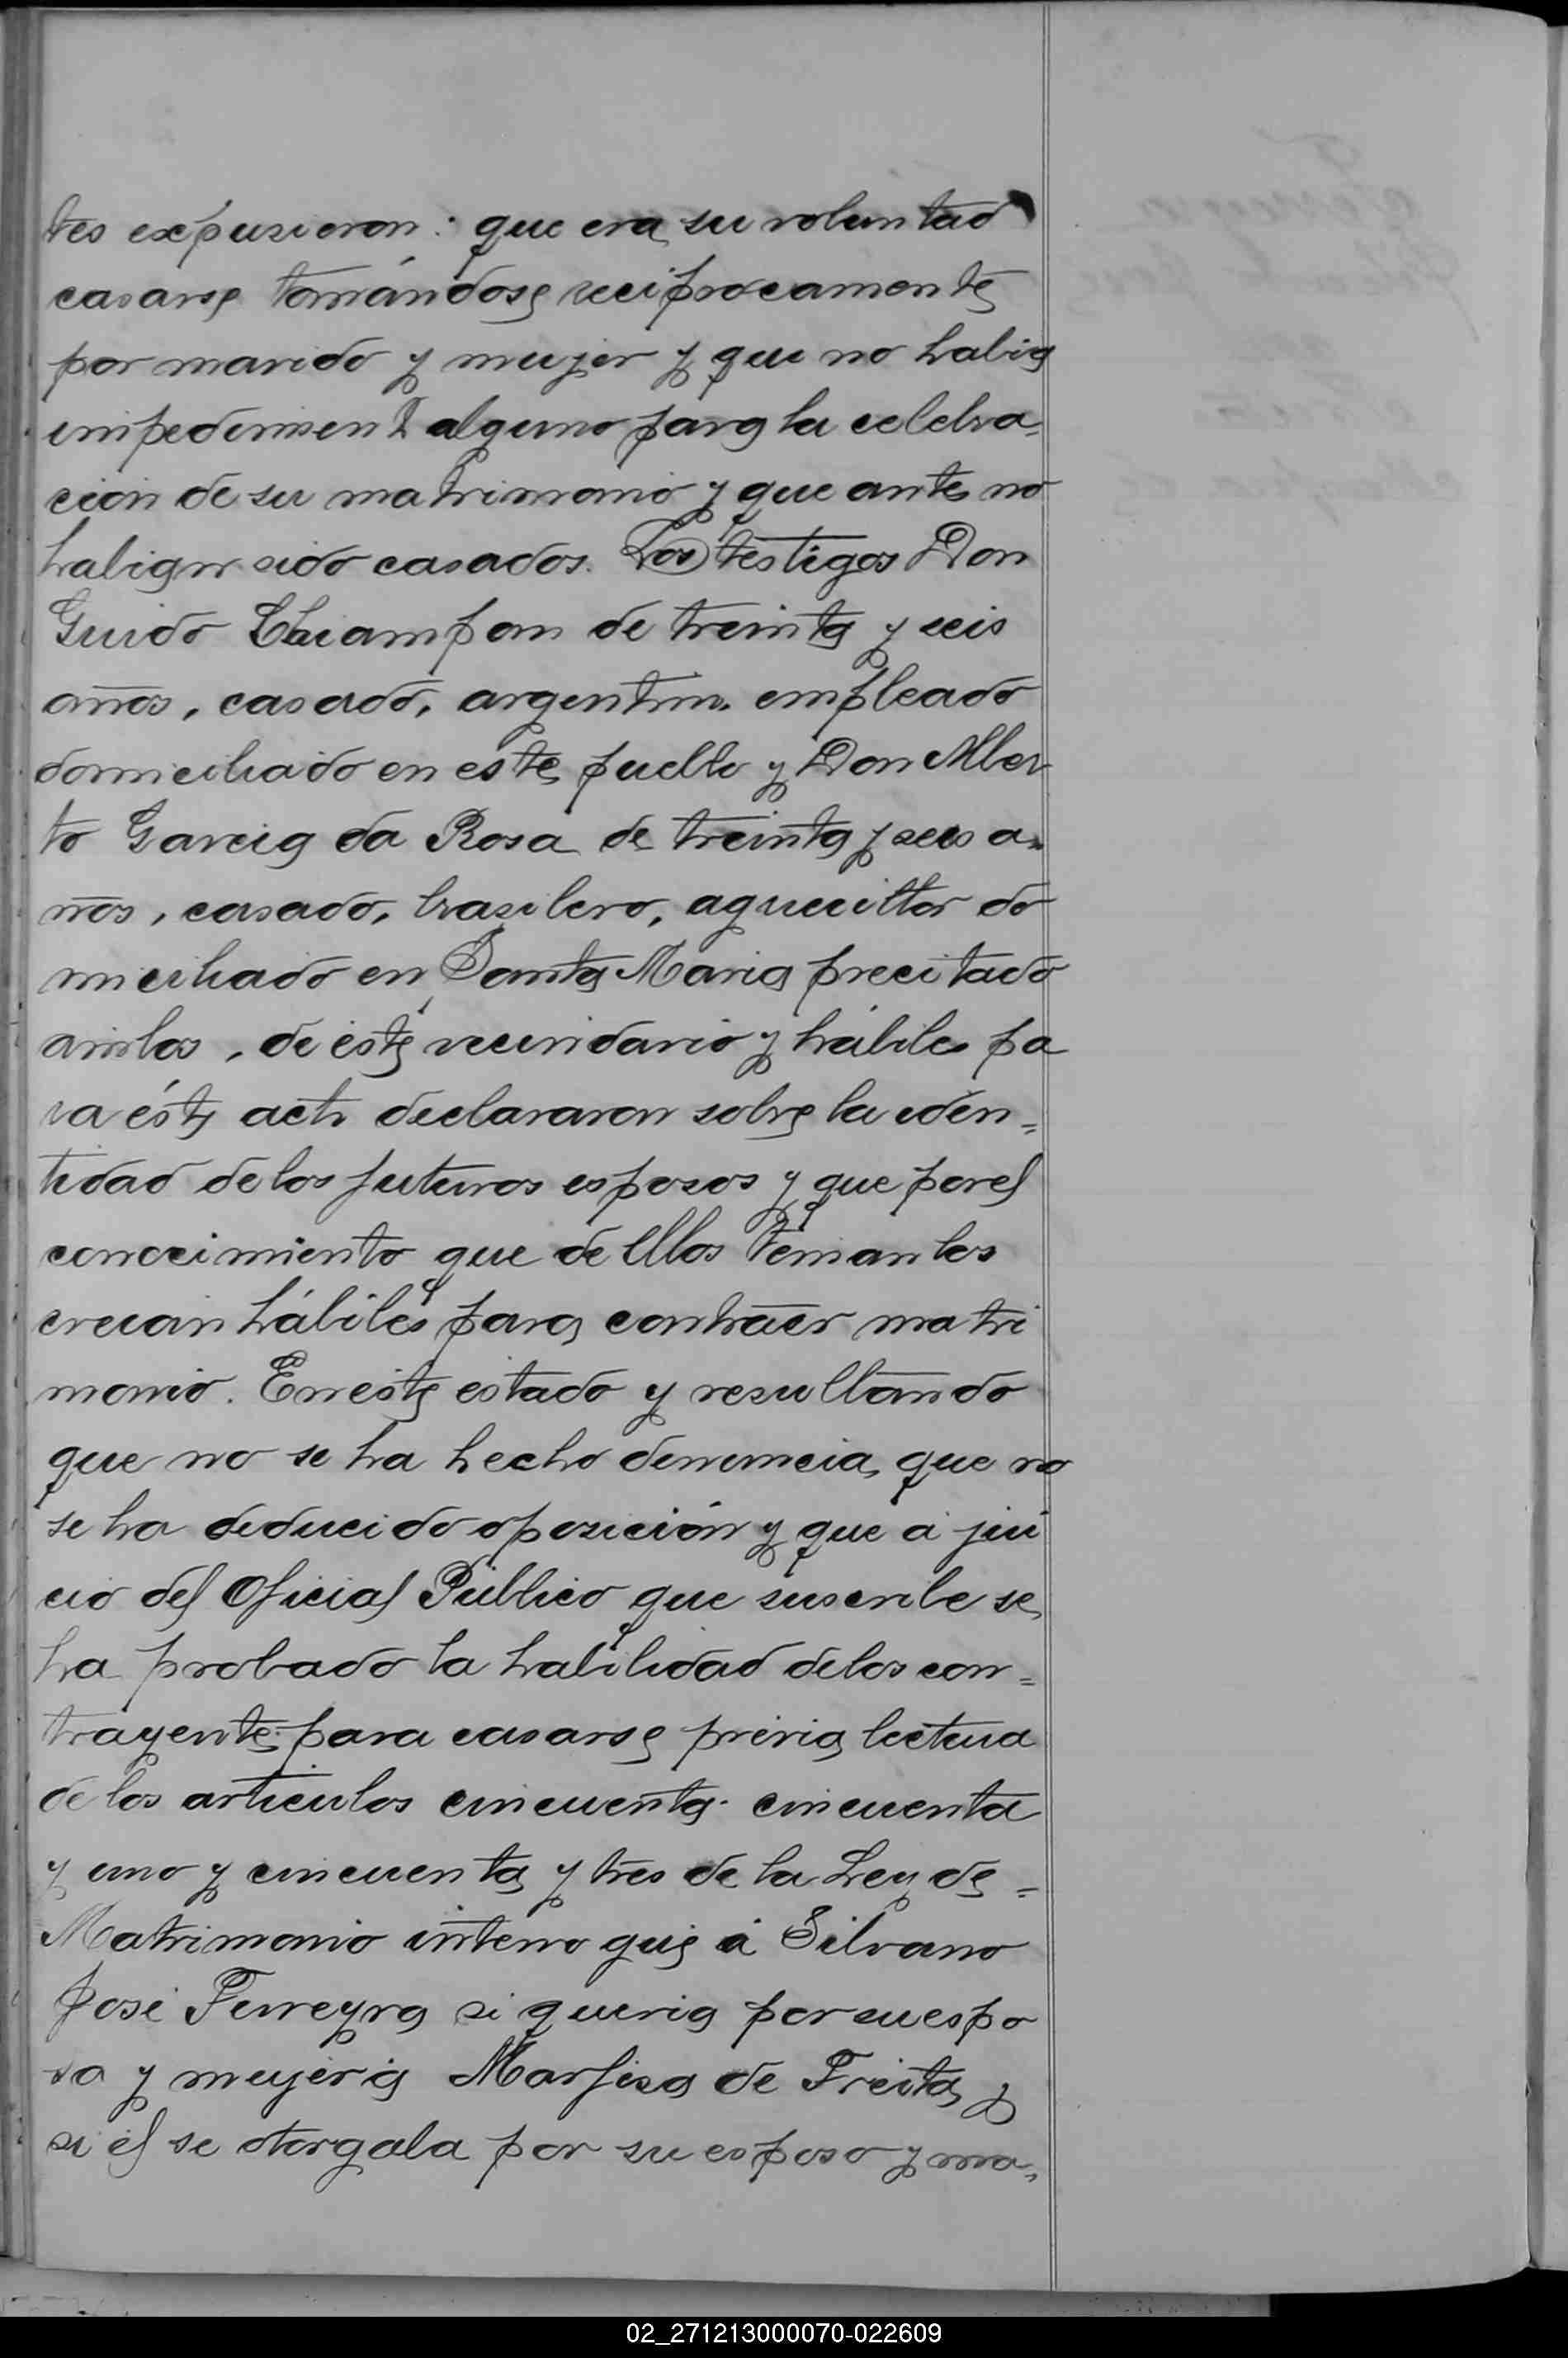 tes expusieron: que era su voluntad
casarse tomándose reciprocamente
por marido y mujer y que no habia
impedimento alguno para la celebra-
cion de su matrimonio y que antes no
habian sido casados. Los testigos Don
Guido Chiampan de treinta y seis
años, casado, argentino, empleado
domiciliado en este pueblo y Don Alber
to Garcia da Rosa de treinta y seis a-
ños, casado, brasilero, agricultor do
miciliado en Santa Maria precitado
ambos, de este vecindario y habiles pa
ra éste acto declararon sobre la iden=
tidad de los futuros esposos y que por el
conocimiento que de ellos tenian los
creian hábiles para contraer matri
monio. En este estado y resultando
que no se ha hecho denuncia, que no
se ha deducido oposición y que á jui
cio del Oficial Público que suscribe se
ha probado la habilidad de los con=
trayentes para casarse previa lectura
de los articulos cincuenta. cincuenta
y uno y cincuenta y tres de la Ley de =
Matrimonio interrogué á Silvano
José Ferreyra si queria por su espo
sa y mujer á Marfisa de Freitas y
si él se otorgaba por su esposo y ma-
02_271213000070-022609